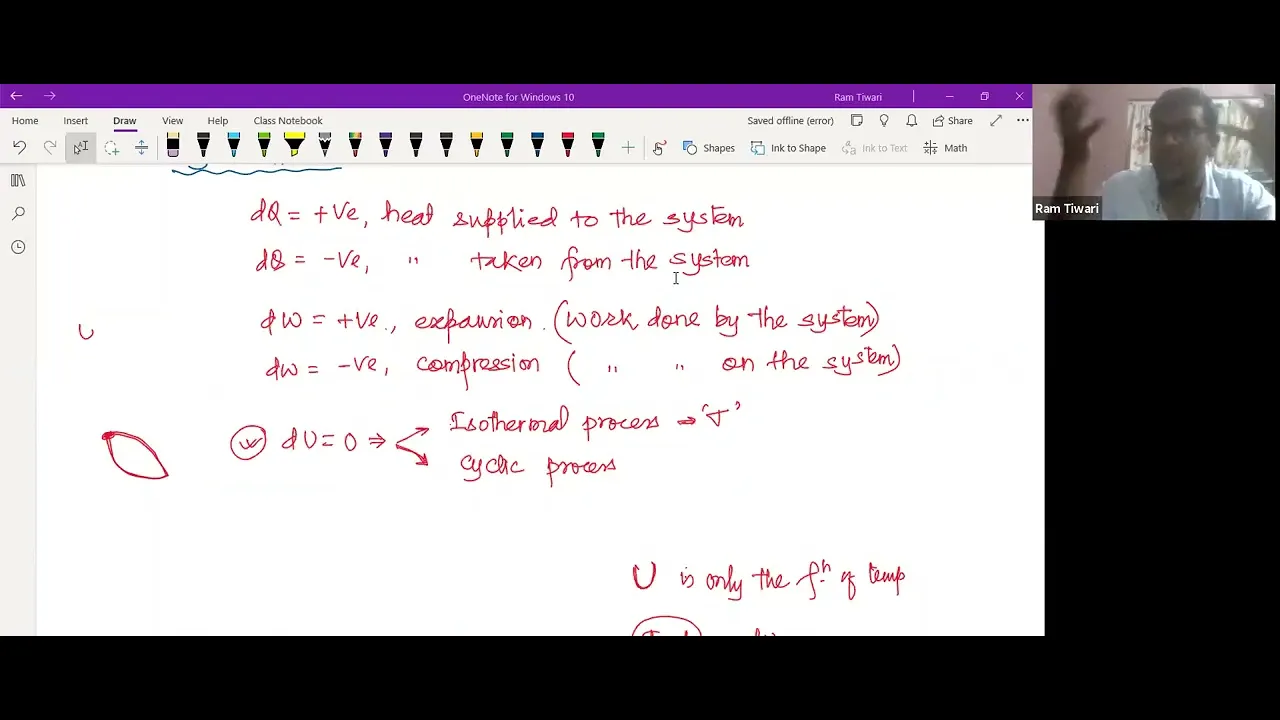 OneNote for Windows 10
Ram Tiwari
Home Insert Draw View Help Class Notebook
Saved offline (error) Share
Shapes Ink to Shape Ink to Text Math
Ram Tiwari
dQ = +Ve, heat supplied to the system
dQ = -Ve, " taken from the system
dW = +Ve, expansion. (work done by the system)
dw = -Ve, compression ( " " on the system)
U
dU = 0 ⇒ Isothermal process → 'T'
cyclic process
U is only the fn of temp